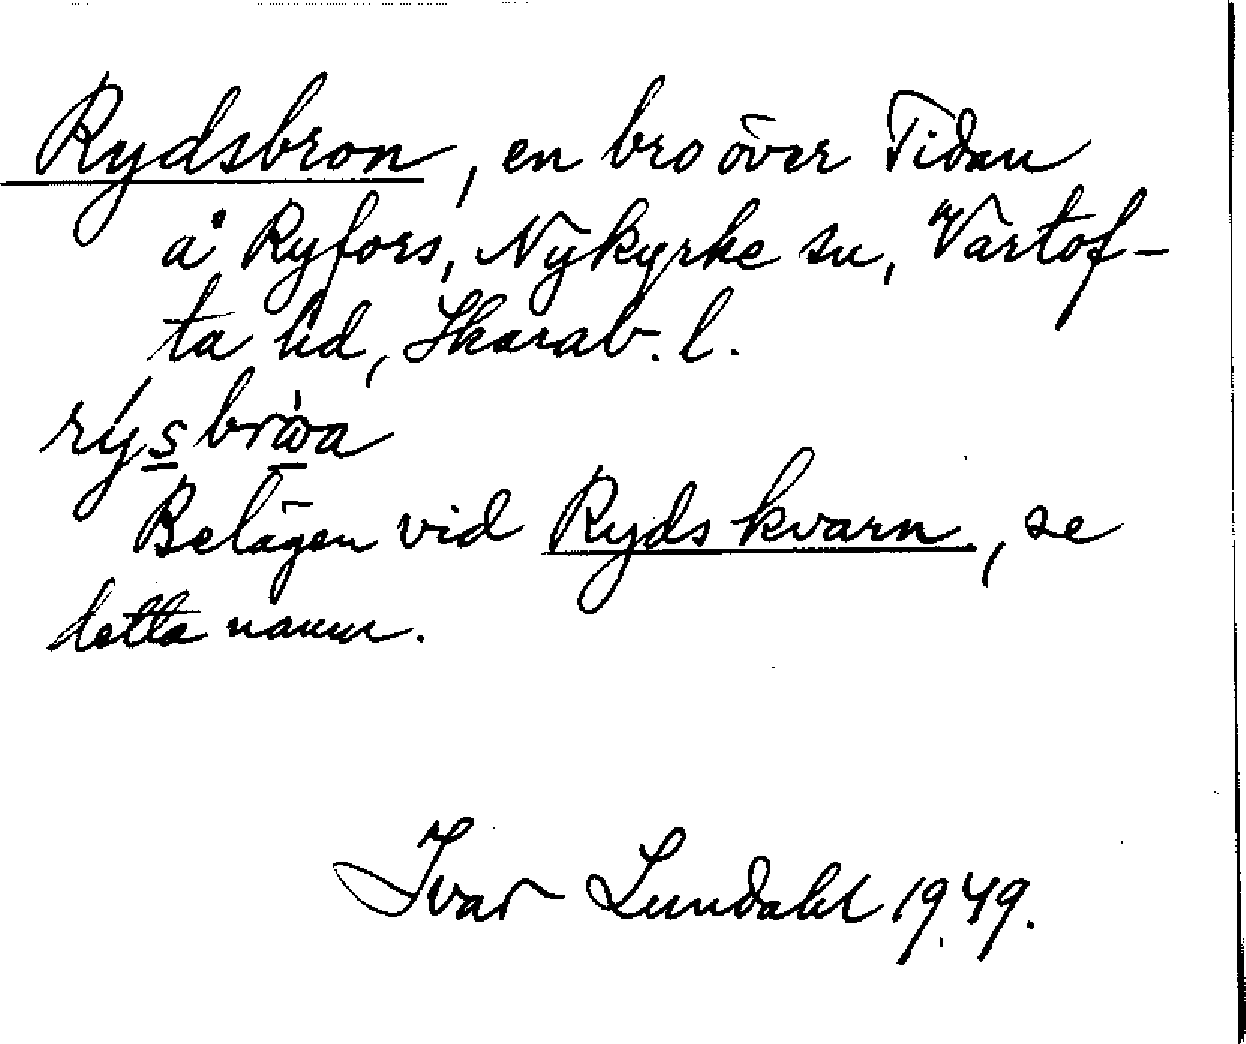 Rydsbron, en bro över Tidan
å Ryfors, Nykyrke sn, Vartof-
ta hd, Skarab. l.
Belägen vid Ryds kvarn, se
detta namn.
Ivar Lundahl 1949.